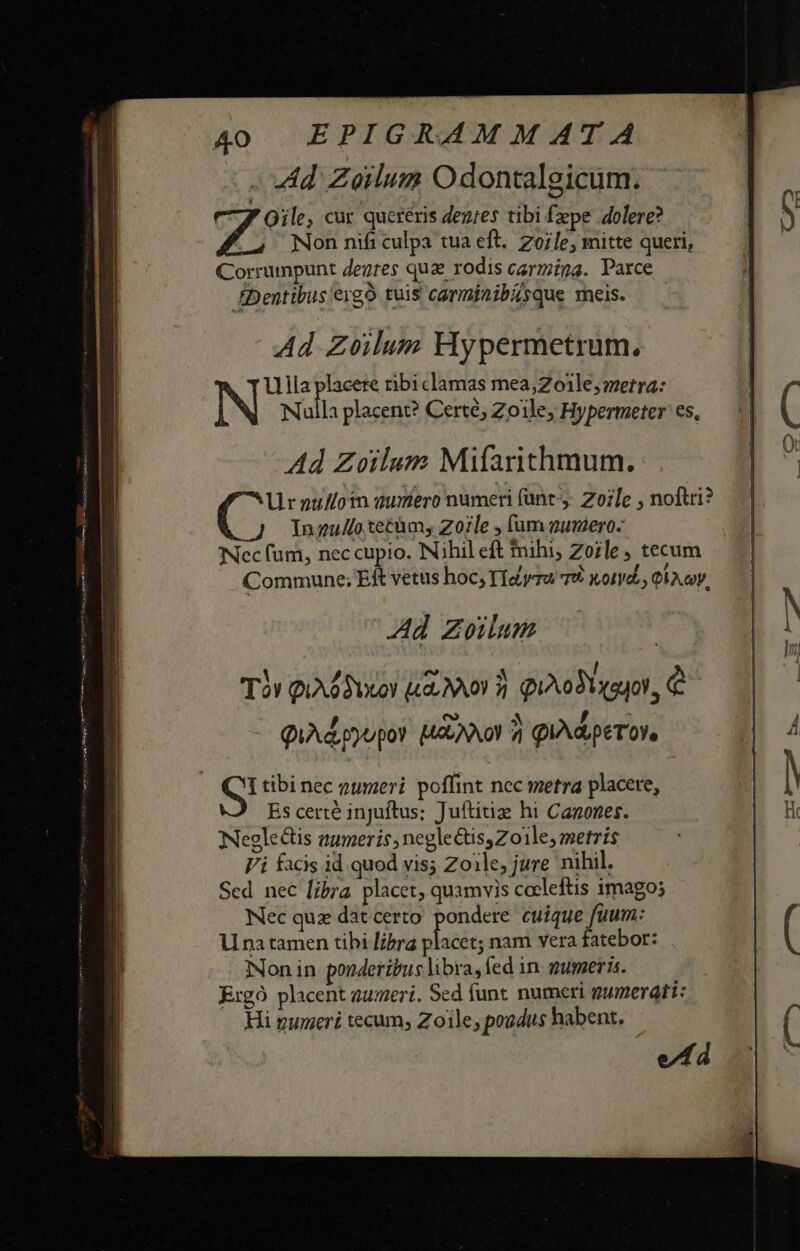 40 EPIGRAMMATA
Ad Zoilum Odontalgicum.
ZOile, cur quereris dentes tibi ſæpe dolere?
Non niſi culpa tua eſt. Zoile, mitte queri,
Corrumpunt dentes quæ rodis carmina. Parce
Dentibus ergò tuis carminibúsque meis.
Ad Zoilum Hypermetrum.
NUlla placere tibi clamas mea, Zoile, metra:
Nulla placent? Certè, Zoile, Hypermeter es,
Ad Zoilum Miſarithmum.
CUr nullo in numero numeri ſunt, Zoile, noſtri?
In nullo tecùm, Zoile, ſum numero.
Nec ſum, nec cupio. Nihil eſt mihi, Zoile, tecum
Commune. Eſt vetus hoc, Πάντα τὰ κοινὰ, φίλων.
Ad Zoilum
Τὸν φιλόδικον μᾶλλον ἢ φιλοδίκαιον, &
φιλάργυρον μᾶλλον ἢ φιλάρετον.
SI tibi nec numeri poſſint nec metra placere,
Es certè injuſtus; Juſtitiæ hi Canones.
Neglectis numeris, neglectis, Zoile, metris
Vi facis id quod vis; Zoile, jure nihil.
Sed nec libra placet, quamvis cœleſtis imago;
Nec quæ dat certo pondere cuique ſuum:
Una tamen tibi libra placet; nam vera fatebor:
Non in ponderibus libra, ſed in numeris.
Ergò placent numeri. Sed ſunt numeri numerati:
Hi numeri tecum, Zoile, pondus habent.
Ad